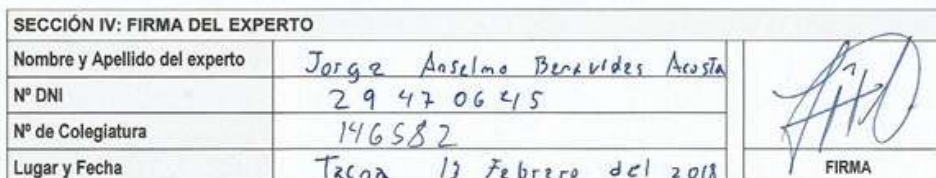 SECCIÓN IV: FIRMA DEL EXPERTO
Nombre y Apellido del experto Jorge Anselmo Benavides Acosta
Nº DNI 29470645
Nº de Colegiatura 146582
Lugar y Fecha Tacna 13 Febrero del 2018
FIRMA